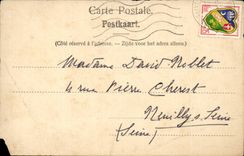 Carte Postale.
Postkaart.
(Côté réservé à l'adresse. — Zijde voor het adres alleen.)
Madame David Nollet
4 rue Pierre Cherest
Neuilly s. Seine
(Seine)